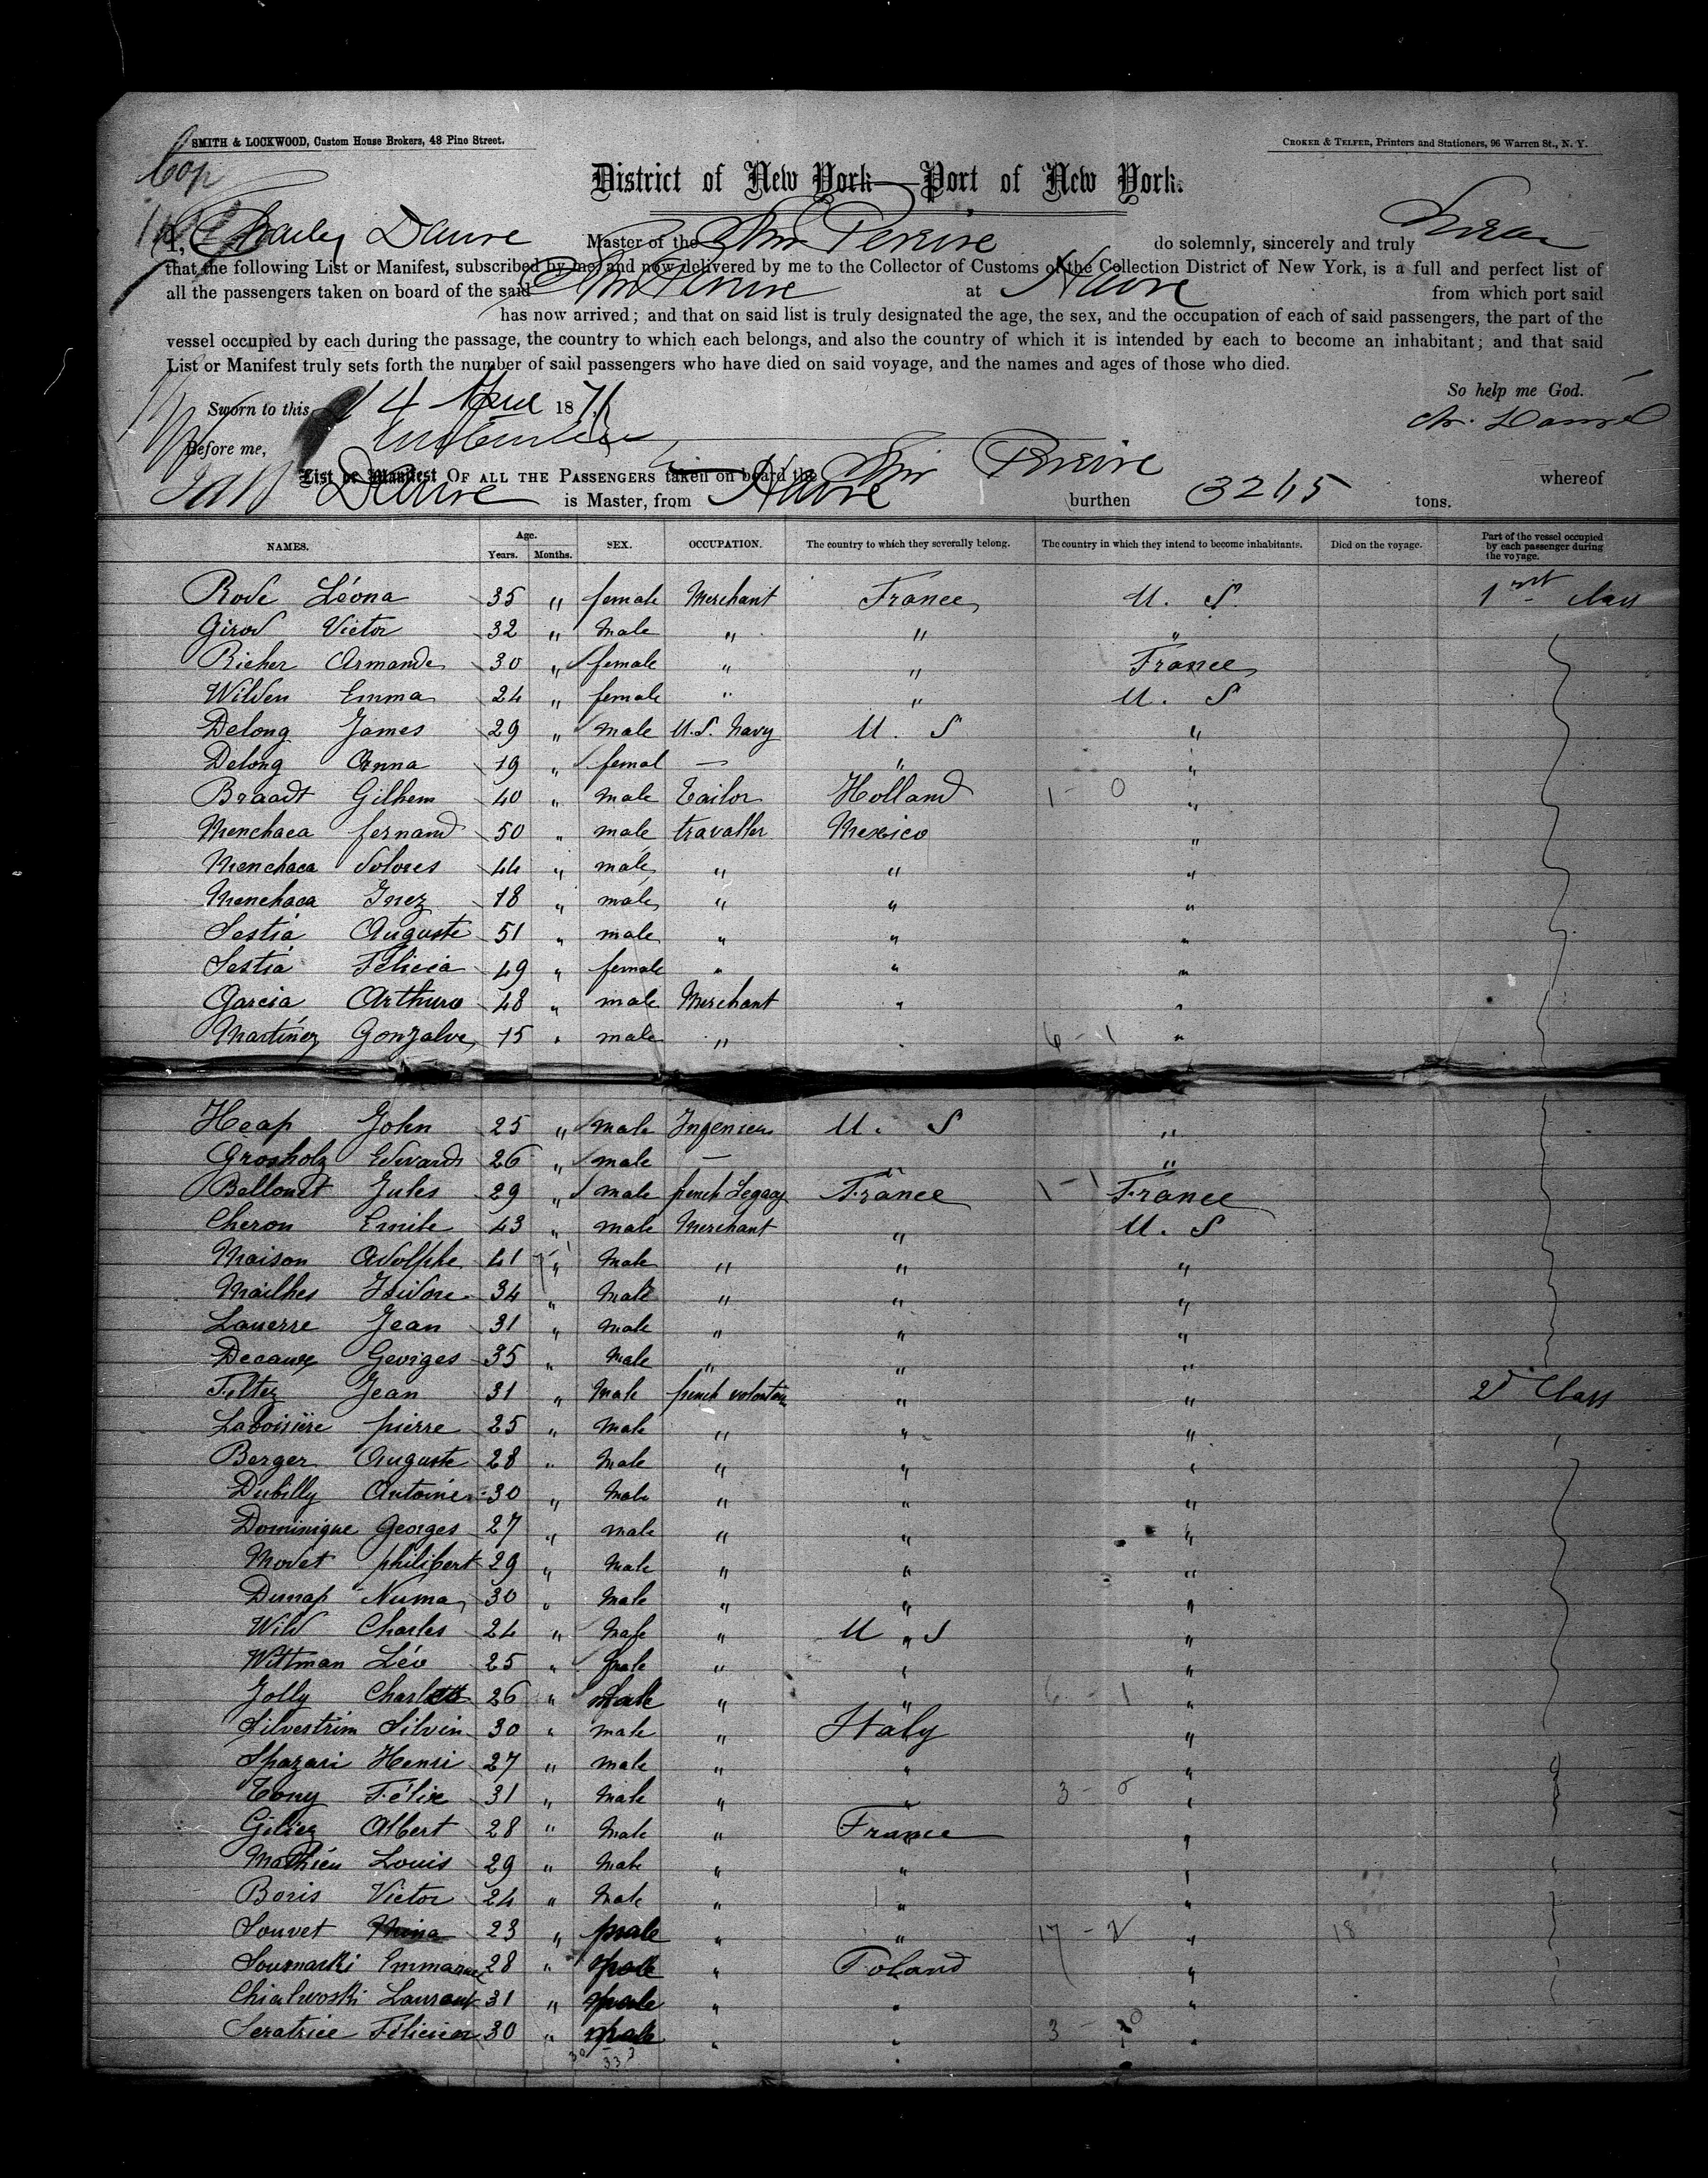 SMITH & LOCKWOOD, Custom House Brokers, 48 Pine Street.
CROKER & TELFER, Printers and Stationers, 96 Warren St., N. Y.
Cop
District of New York—Port of New York.
I, Charley Daure Master of the Shr Pereire do solemnly, sincerely and truly Swear
that the following List or Manifest, subscribed by me, and now delivered by me to the Collector of Customs of the Collection District of New York, is a full and perfect list of
all the passengers taken on board of the said Shr Pereire at Havre from which port said
has now arrived; and that on said list is truly designated the age, the sex, and the occupation of each of said passengers, the part of the
vessel occupied by each during the passage, the country to which each belongs, and also the country of which it is intended by each to become an inhabitant; and that said
List or Manifest truly sets forth the number of said passengers who have died on said voyage, and the names and ages of those who died.
So help me God.
Sworn to this 14 April 1871
Before me,
List or Manifest OF ALL THE PASSENGERS taken on board the Shr Pereire whereof
Daure is Master, from Havre burthen 3245 tons.
NAMES. Age. Years. Months. SEX. OCCUPATION. The country to which they severally belong. The country in which they intend to become inhabitants. Died on the voyage. Part of the vessel occupied by each passenger during the voyage.
Rode Léona 35 " female Merchant France U. S. 1rst Class
Girod Victor 32 " Male " " "
Richer Armande 30 " female " " France
Wilden Emma 24 " female " " U. S
Delong James 29 " male U.S. Navy U. S "
Delong Anna 19 " femal — " "
Braadt Gilhem 40 " Male Tailor Holland 1 - 0 "
Menchaca fernand 50 " male travaller Mexico "
Menchaca Dolores 44 " male " " "
Menchaca Inez 18 " male " " "
Sestia Auguste 51 " male " " "
Sestia Félicia 49 " female " " "
Garcia Arthuro 48 " male Merchant " "
Martinez Gonzalve 15 " male " 6 - 1 "
Heap John 25 " male Ingenieur U. S "
Grosholz Edward 26 " male — " "
Bellonet Jules 29 " male french Legacy France 1 - 1 France
Cheron Emile 43 " male Merchant " U. S
Maison Adolphe 41 " Male " " "
Mailhes Isidore 34 " Male " " "
Lauerre Jean 31 " Male " " "
Decaux Georges 35 " Male " " "
Feltez Jean 31 " Male french volontaire " " 2d Class
Laboisière pierre 25 " Male " " "
Berger Auguste 28 " Male " " "
Dubilly Antoine 30 " Male " " "
Dominique Georges 27 " male " " "
Modet philibert 29 " Male " " "
Dunap Numa 30 " Male " " "
Wild Charles 24 " Male " U " S "
Wittman Léo 25 " Male " " "
Jolly Charles 26 " Male " " 6 - 1 "
Silvestrim Silvin 30 " male " Italy "
Spazari Henri 27 " male " " "
Tony Félix 31 " Male " " 3 - 0 "
Giliez Albert 28 " Male " France "
Mathieu Louis 29 " Male " " "
Boris Victor 24 " Male " " "
Souvet 23 " male " " 17 - " 18
Sournaski Emmanuel 28 " male " Poland "
Chialwoski Laurent 31 " male " " "
Seratrice Félicien 30 " male " " 3 - 0 "